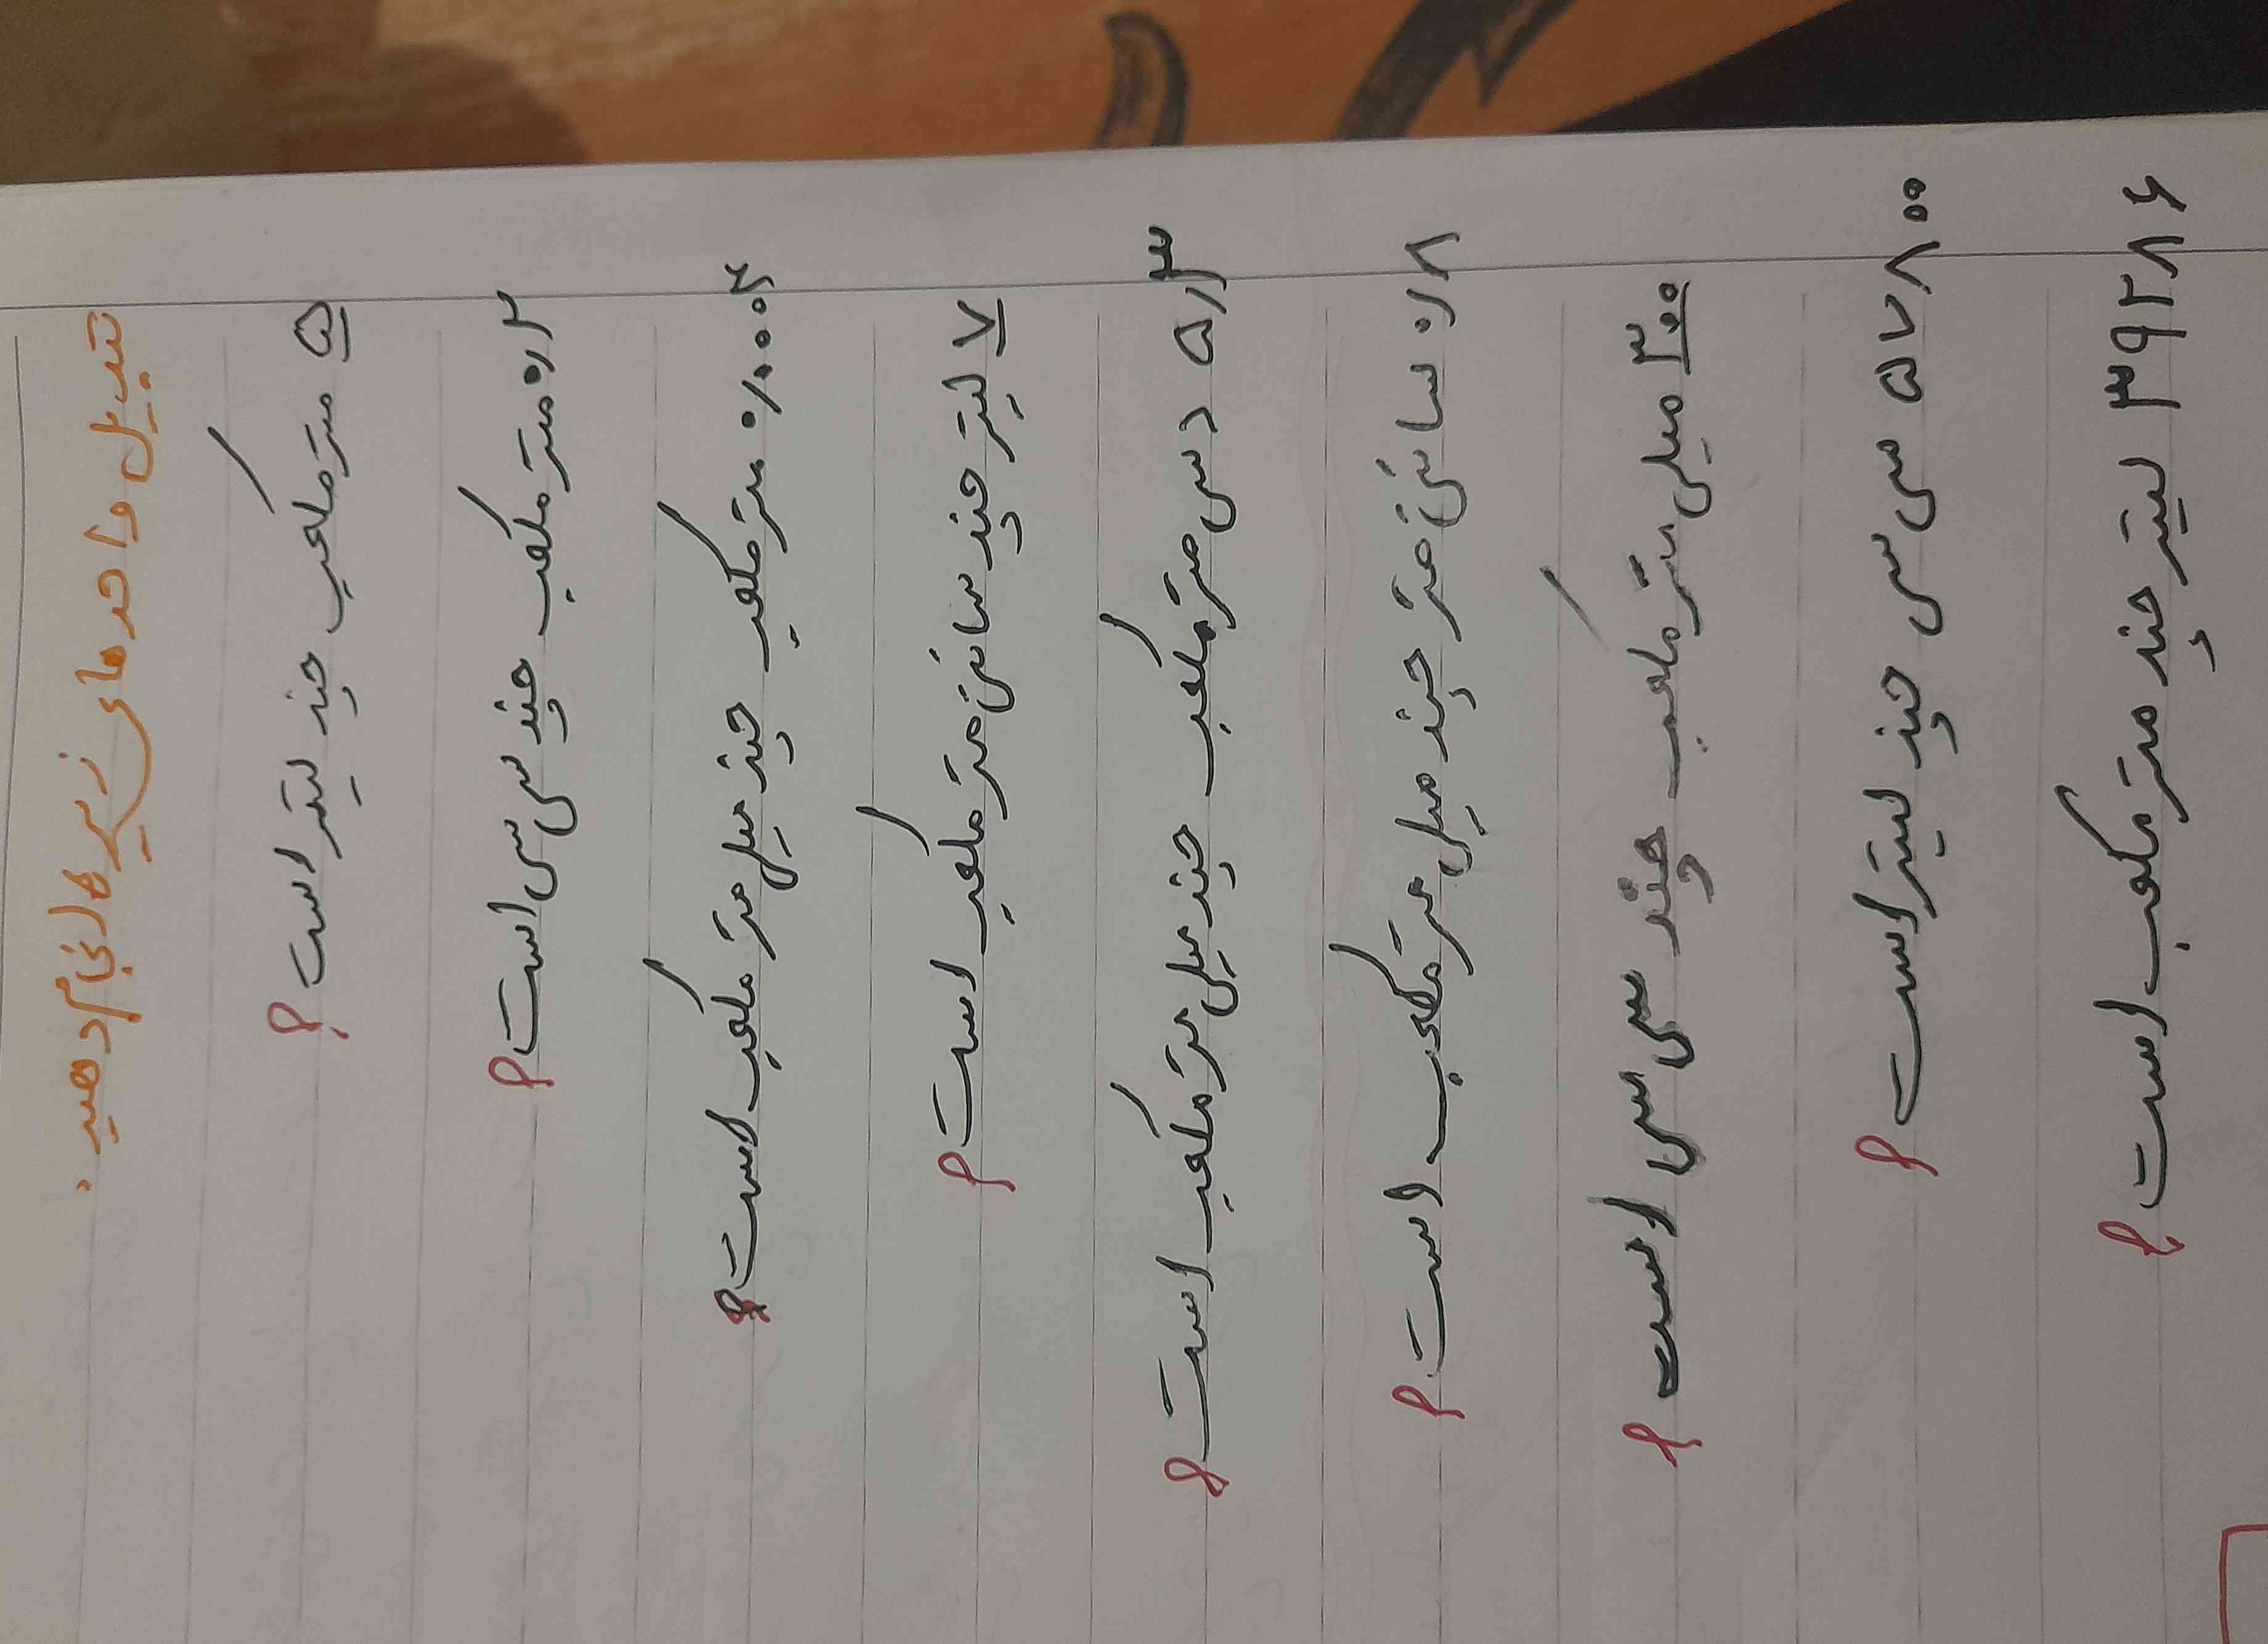 تبدیل واحد های زیر را انجام دهید.
۵ متر مکعب چند لیتر است ؟
۰/۲ متر مکعب چند سی سی است ؟
۰/۰۰۰۴ متر مکعب چند میلی متر مکعب است ؟
۷ لیتر چند سانتی متر مکعب است ؟
۵/۳ دسی متر مکعب چند میلی متر مکعب است ؟
۰/۸ سانتی متر چند میلی متر مکعب است ؟
۳۰۰ میلی متر مکعب چند سی سی است ؟
۵۷۸۰۰ سی سی چند لیتر است ؟
۳۹۲۸۶ لیتر چند متر مکعب است ؟